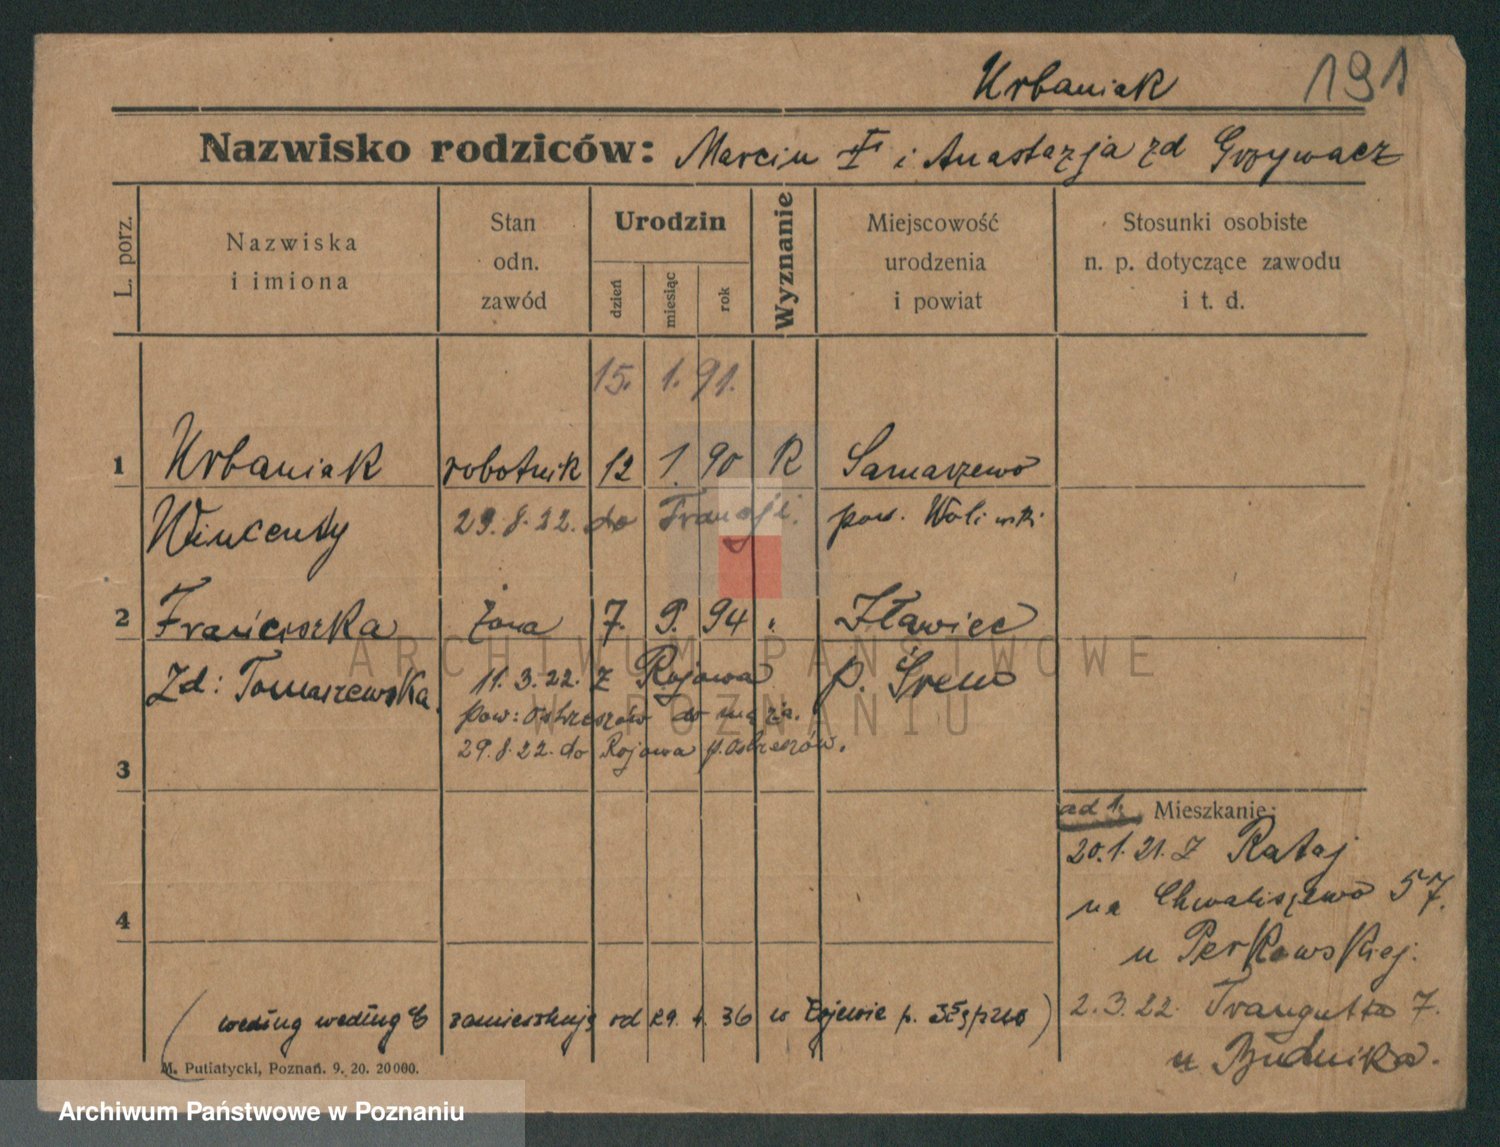 Urbaniak 191
Nazwisko rodziców: Marcin i Anastazja zd Grzywacz
L. porz.
Nazwiska
i imiona
Stan
odn.
zawód
Urodzin
dzień
miesiąc
rok
Wyznanie
Miejscowość
urodzenia
i powiat
Stosunki osobiste
n. p. dotyczące zawodu
i t. d.
15. 1. 91.
1 Urbaniak robotnik 12 1. 90 R Samarzewo
Wincenty 29.8.22. do Francji. pow.
2 Franciszka żona 7. 9. 94 " Iławiec
Zd: Tomaszewska. 11.3.22. z Rojowa p. Śrem
pow: Ostrzeszów do męża.
29.8.22. do Rojowa p. Ostrzeszów.
3
ad 1. Mieszkanie:
20.1.21. z Rataj
na Chwaliszewo 57.
u Perkowskiej.
2.3.22. Traugutta 7.
u Budnika.
4
(według według zamieszkują od 29. 4. 36 w p.)
M. Putiatycki, Poznań. 9. 20. 20000.
ARCHIWUM PAŃSTWOWE
W POZNANIU
Archiwum Państwowe w Poznaniu